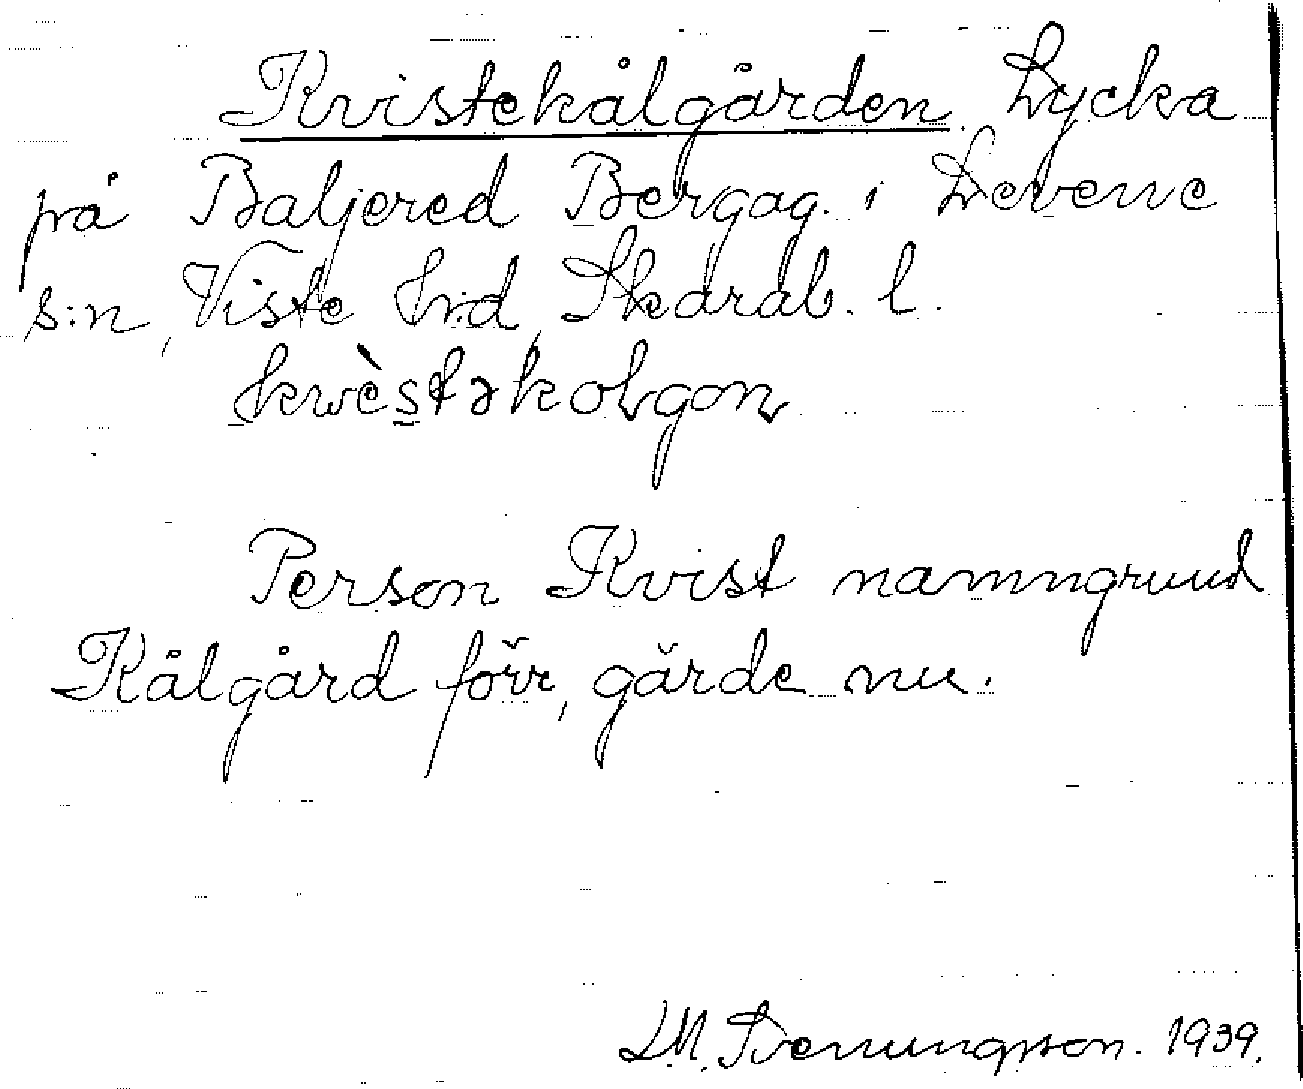 Kvistekålgården Lycka
på Baljered Bergag. i Levene
s:n, Viste hd, Skarab. l.
kwèstəkoɫgoɳ
Person Kvist namngrund
Kålgård förr, gärde nu.
1939.